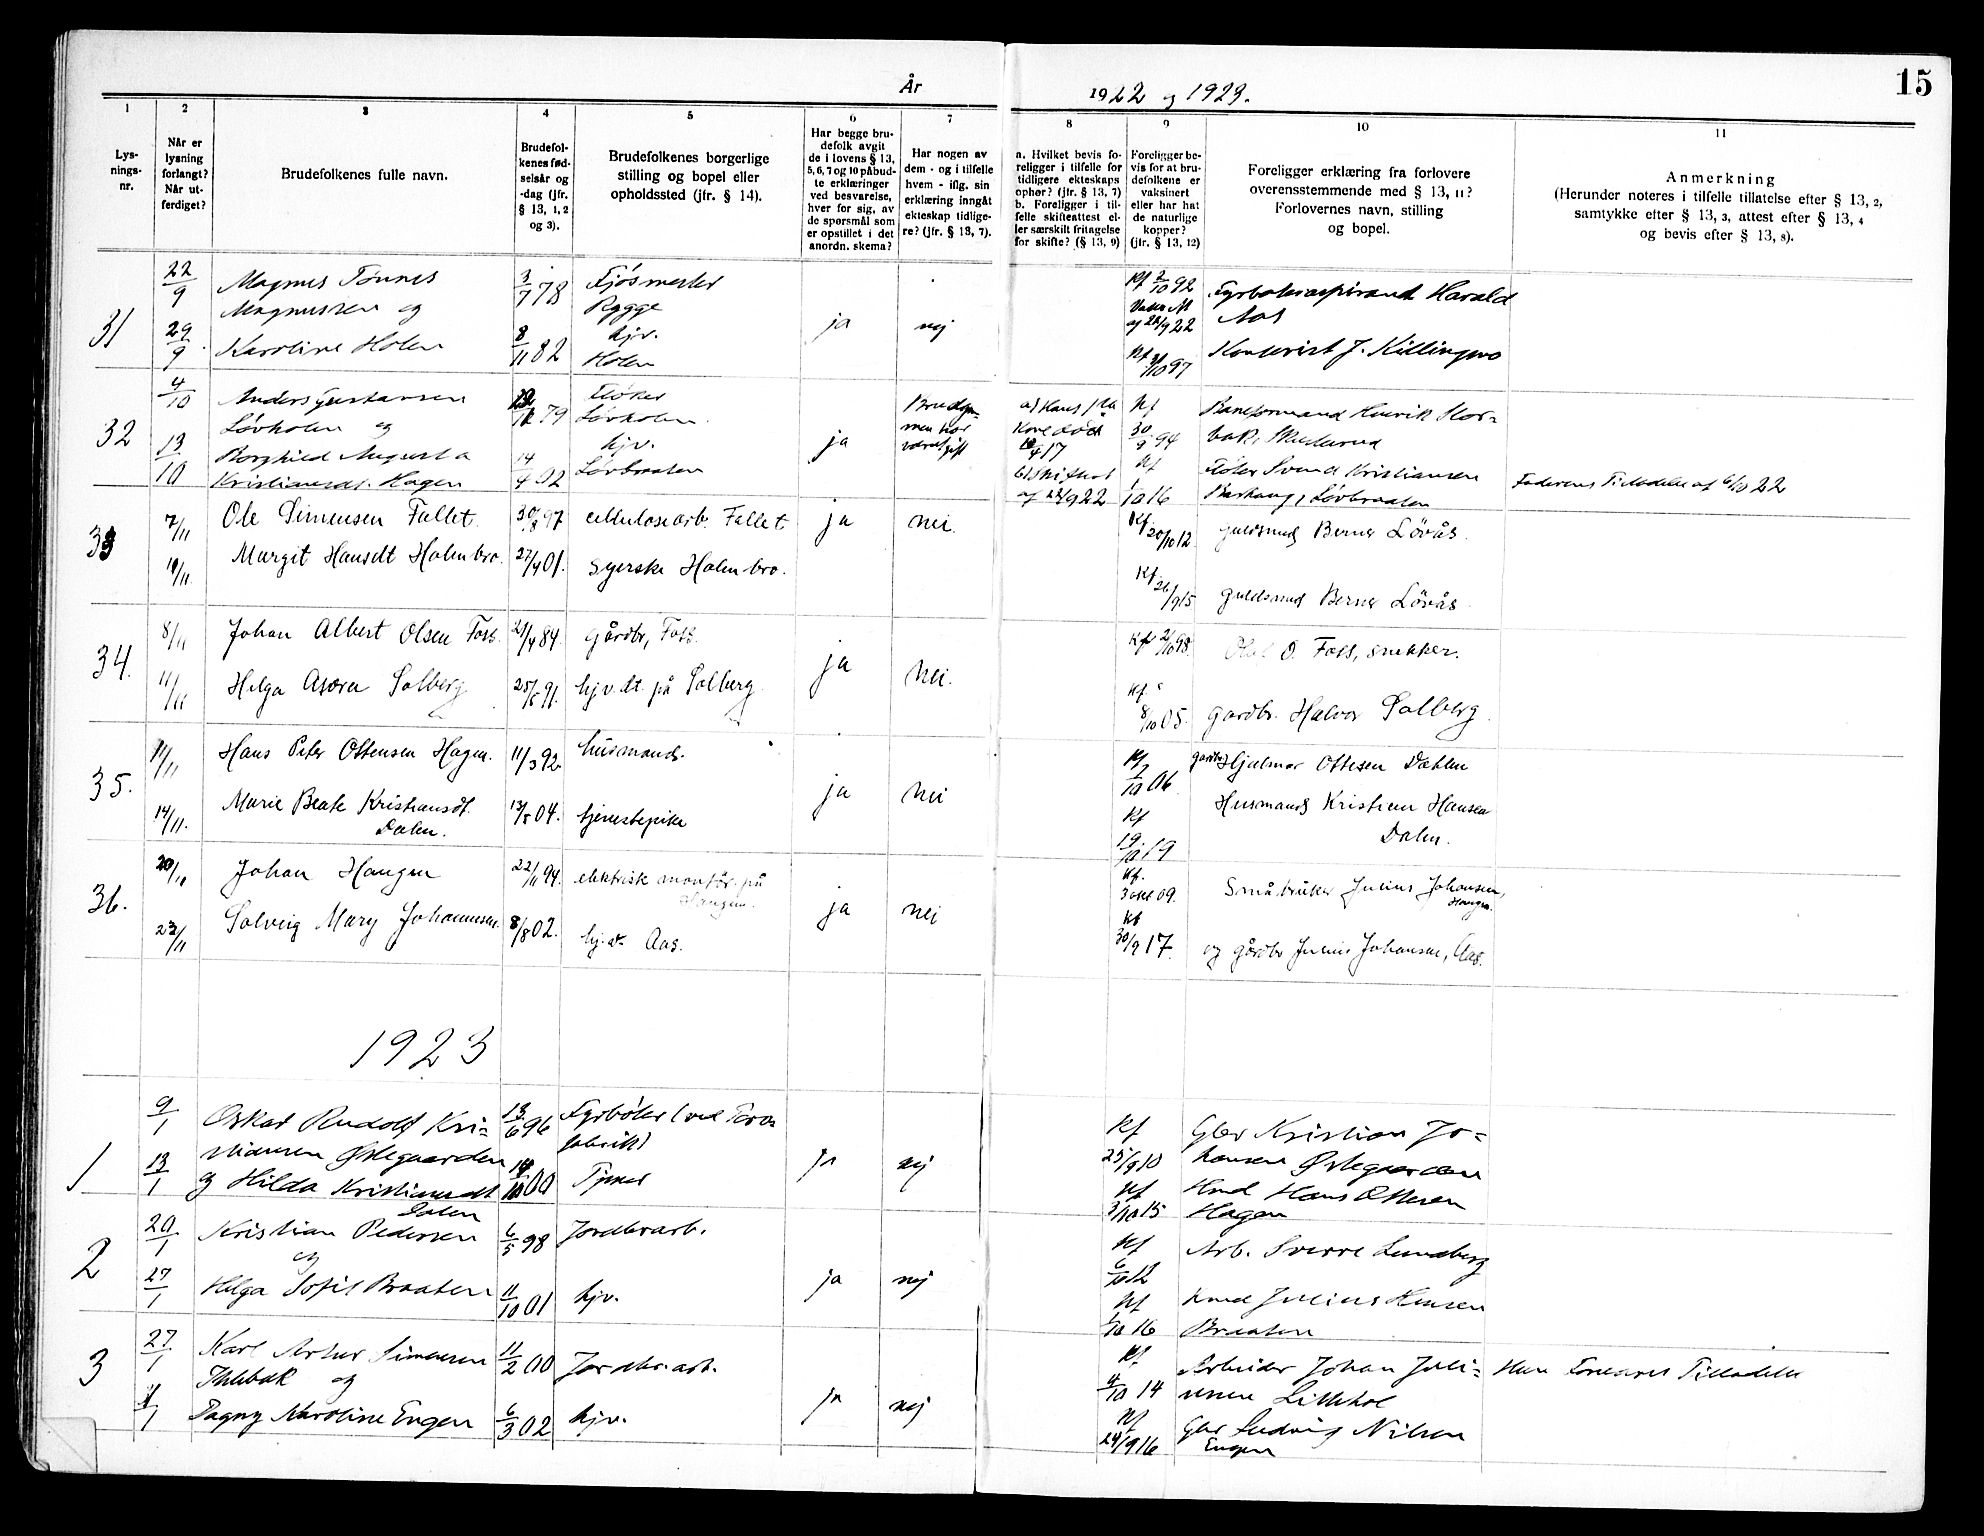 15
År 1922 og 1923.
1 2 3 4 5 6 7 8 9 10 11
Lys-
nings-
nr.
Når er
lysning
forlangt?
Når ut-
ferdiget?
Brudefolkenes fulle navn.
Brudefol-
kenes fød-
selsår og
-dag (jfr.
§ 13, 1, 2
og 3).
Brudefolkenes borgerlige
stilling og bopel eller
opholdssted (jfr. § 14).
Har begge bru-
defolk avgit
de i lovens § 13,
5, 6, 7 og 10 påbud-
te erklæringer
ved besvarelse,
hver for sig, av
de spørsmål som
er opstillet i det
anordn. skema?
Har nogen av
dem - og i tilfelle
hvem - iflg. sin
erklæring inngåt
ekteskap tidlige-
re? (jfr. § 13, 7).
a. Hvilket bevis fo-
religger i tilfelle for
tidligere ekteskaps
ophør? (jfr. § 13, 7)
b. Foreligger i til-
felle skifteattest el-
ler særskilt fritagelse
for skifte? (§ 13, 9)
Foreligger be-
vis for at bru-
defolkene er
vaksinert
eller har hat
de naturlige
kopper?
(jfr. § 13, 12)
Foreligger erklæring fra forlovere
overensstemmende med § 13, 11?
Forlovernes navn, stilling
og bopel.
Anmerkning
(Herunder noteres i tilfelle tillatelse efter § 13, 2,
samtykke efter § 13, 3, attest efter § 13, 4
og bevis efter § 13, 8).
31
22/9
29/9
Magnus Tønnes
Magnussen og
Karoline Holen
3/7 78
8/11 82
Fjøsmester
Rygge
hjv.
Holen
ja
nej
Kf 2/10 92
22/9 22
Kf 97
Fyrbøteraspirant Harald
Aas
Kontorist J. Killingmo
32
4/10
13/10
Anders Gustavsen
Løvholen og
Borghild Augusta
Kristiansdt. Hagen
79
14/4 02
Fløter
Løvholen.
hjv.
Løvbraaten
ja
Brudgom-
men har
været gift
a) Hans
Kone død
17
b) Skifteat
af 22/9 22
Kf
30/9 94
Kf
1/10 16
Baneformand Henrik Stor-
bak, Skulerud
Fløter Svend Kristiansen
Løvbraaten
Faderens Tilladelse af 6/10 22
33
7/11
10/11
Ole Simensen Fallet.
Margit Hansdt Holmbro.
30/8 97
27/4 01.
cellulosearb. Fallet
syerske Holmbro.
ja
nei.
Kf 20/10 12
Kf 26/9 15
guldsmed Berner Lövås.
guldsmed Berner Lövås
34.
8/11
11/11
Johan Albert Olsen Foss.
Helga Asora Solberg
21/4 84.
25/5 91.
gårdbr, Foss.
hjv. dt. på Solberg
ja
nei.
Kf 2/10 98.
Kf
8/10 05.
O. Foss, snekker.
gårdbr. Halvor Solberg
35.
11/11
14/11.
Hans Peter Ottensen Hagen.
Marie Beate Kristiansdt.
Dalen.
11/3 92
13/5 04.
husmand.
tjenestepike
ja
nei
Kf
7/10 06
Kf
19/10 19
gardbr Hjalmar Ottesen Dæhlen
Husmand Kristian Hansen
Dalen.
36.
20/11
23/11
Johan Haugen
Solveig Mary Johannesen.
22/11 94.
8/8 02.
elektrisk montør. på
Haugen.
hj. v. Aas.
ja
nei
Kf.
3 okt 09.
Kf
30/9 17.
Småbruker Julius Johansen,
Haugen.
og gårdbr Julius Johansen, Aas.
1923
1
9/1
13/1
Oskar Rudolf Kri-
stiansen Østegaarden
og Hilda Kristiansdt
Dalen
13/6 96
14/10 00
Fyrbøter (ved
fabrik)
Tjener
ja
nej
Kf
25/9 10
Kf
3/10 15
Gbr Kristian Jo-
hansen Østegaarden
Hmd Hans Ottesen
Hagen
2
20/1
27/1
Kristian Pedersen
og
Helga Sofie Braaten
6/5 98
11/10 01
Jordbrarb.
hjv.
ja
nej
Kf
6/10 12
Kf
1/10 16
Arb. Sverre Lundberg
Hmd Julius Hansen
Braaten
3
27/1
1
Karl Artur Simensen
Ihlebæk og
Dagny Karoline Engen
11/2 00
6/3 02
Jordbr. arb.
hjv.
ja
nej
Kf
4/10 14
Kf
24/9 16
Arbeider Johan Juli-
ussen Lillehol
Gbr Ludvig Nilsen
Engen
Tilladelse